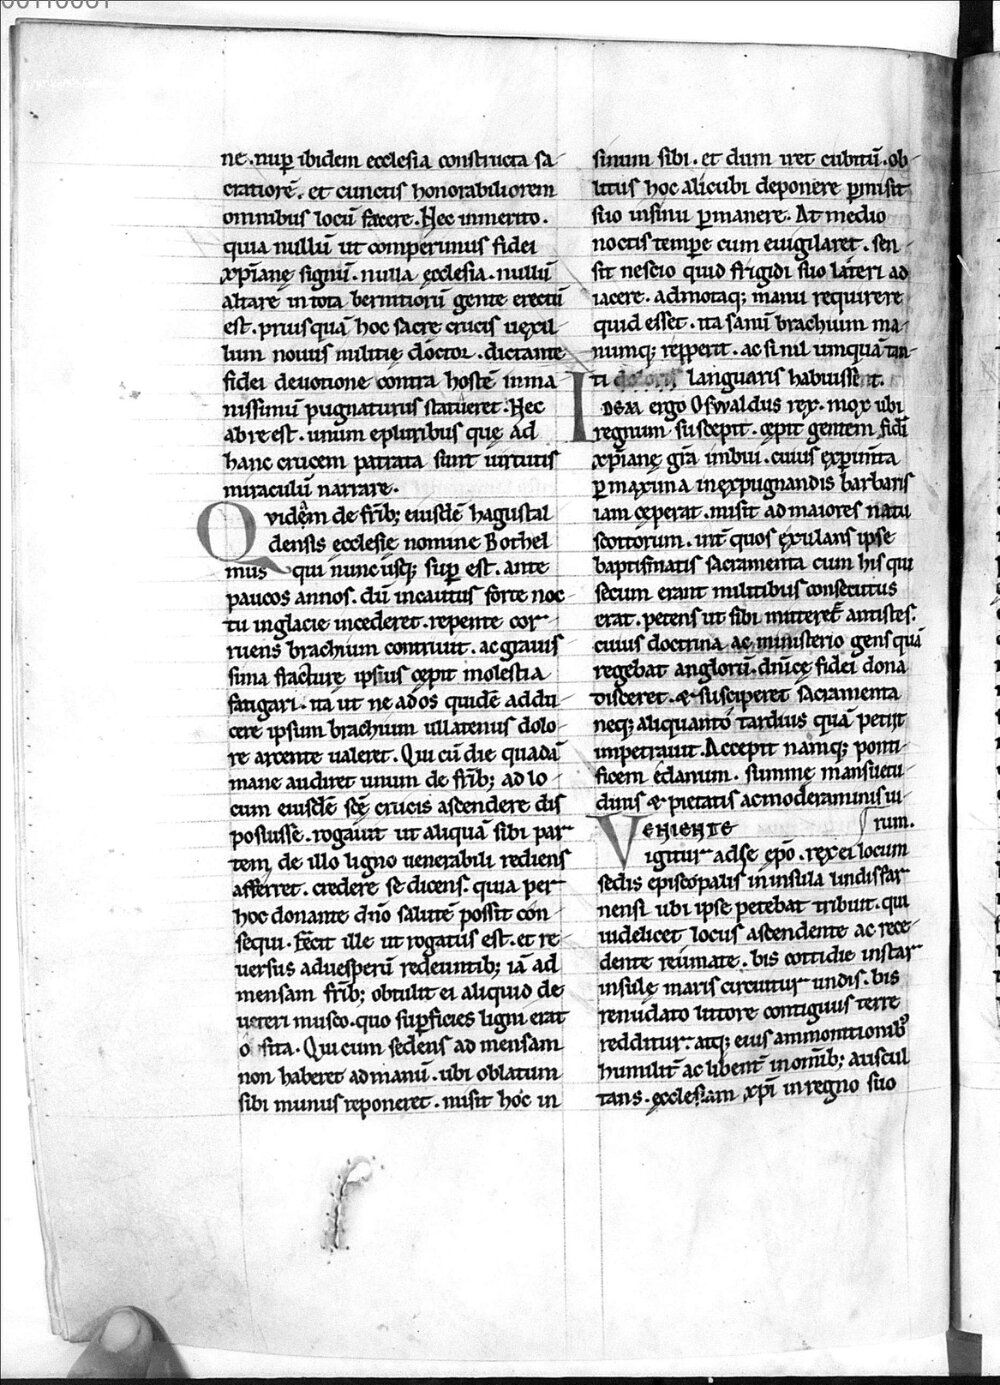 00110061
ne. nup̄ ibidem ecclesia constructa sa
cratiorē. et cunctis honorabiliorem
omnibus locū facere. Nec inmerito.
quia nullū ut comperimus fidei
xp̄ianę signū. nulla ęcclesia. nullū
altare in tota bernitiorū gente erectū
est. priusquā hoc sacre crucis uexil
lum nouus militię doctor. dictante
fidei deuotione contra hostē inma
nissimū pugnaturus statueret. Nec
ab re est. unum e pluribus que ad
hanc crucem patrata sunt uirtutis
miraculū narrare.
Quidēm de fr̄ib; eiusdē hagustal
densis ecclesię nomine Bothel
mus qui nunc usq; sup̄ est. ante
paucos annos. dū incautius forte noc
tu inglacie incederet. repente cor
ruens brachium contriuit. ac grauis
sima fracturę ipsius cępit molestia
fatigari. ita ut ne ad os quidē addu
cere ipsum brachium ullatenus dolo
re arcente ualeret. Qui cū die quadā
mane audiret unum de fr̄ib; ad lo
cum eiusdē scę̄ crucis ascendere dis
posuisse. rogauit ut aliquā sibi par
tem de illo ligno uenerabili rediens
afferret. credere se dicens. quia per
hoc donante dn̄o salutē possit con
sequi. Fecit ille ut rogatus est. et re
uersus aduesperū redeuntib; iā ad
mensam fr̄ib; obtulit ei aliquid de
ueteri musco. quo sup̄ficies ligni erat
o sita. Qui cum sedens ad mensam
non haberet ad manū. ubi oblatum
sibi munus reponeret. misit hoc in
sinum sibi. et dum iret cubitū. ob
litus hoc alicubi deponere p̄misit
suo insinu p̄manere. At medio
noctis tempe cum euigilaret. sen
sit nescio quid frigidi suo lateri ad
iacere. admotaq; manu requirere
quid esset. ita sanū brachium ma
numq; repperit. ac si nil umquā tan
ti doloris languaris habuissent.
IDEM ergo Osvvaldus rex. mox ubi
regnum suscepit. cępit gentem fidi
xp̄ianę gr̄a imbui. cuius exp̄im̄ta
p̄maxima inexpugnandis barbaris
iam ceperat. misit ad maiores natu
scottorum. int̄ quos ęxulans ipse
baptismatis sacramenta cum his qui
secum erant militibus consecutus
erat. petens ut sibi mitteret̄ antistes.
cuius doctrina ac ministerio gens quā
regebat anglorū. dn̄icę fidei dona
disceret. & susciperet sacramenta
neq; aliquanto tardius quā petiit
impetrauit. Accepit namq; ponti
ficem ędanum. summę mansuetu
dinis & pietatis ac moderaminis ui
rum.
VENIENTE
igitur ad se ep̄o. rex ei locum
sedis episcopalis in insula lindisfar
nensi ubi ipse petebat tribuit. qui
uidelicet locus ascendente ac rece
dente reumate. bis cottidie instar
insulę maris circuitur undis. bis
renudato littore contiguus terre
redditur. atq; eius ammonitionib9
humilit̄ ac libent̄ in om̄ib; auscul
tans. ęcclesiam xp̄i in regno suo